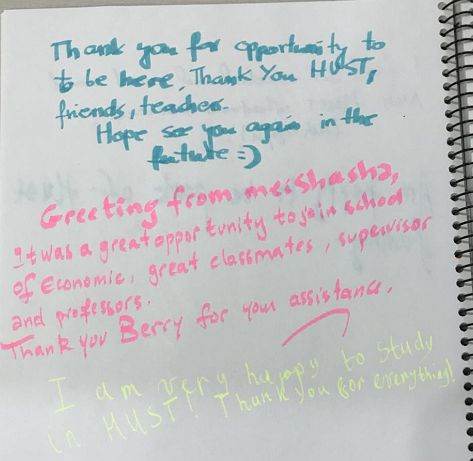 Thank you for opportunity to
to be here, Thank You HUST,
friends, teacher.
Hope see you again in the
future =)
Greeting from meishasha,
It was a great opportunity to join school
of Economic, great classmates, supervisor
and professors.
Thank you Berry for your assistance.
I am very happy to study
in HUST! Thank you for everything!